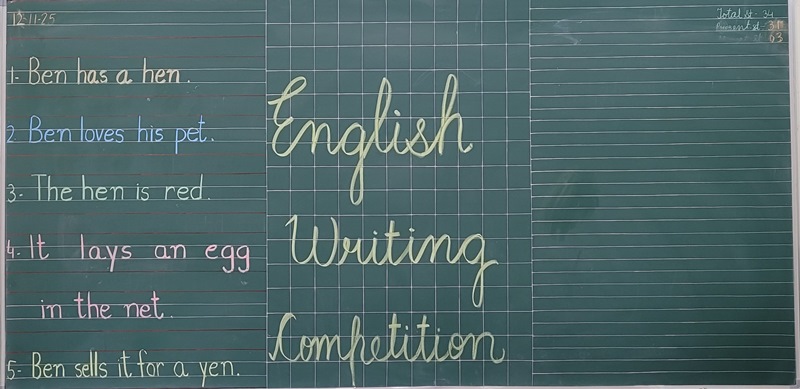 12-11-25
1- Ben has a hen.
2 Ben loves his pet.
3- The hen is red.
4- It lays an egg
in the net.
5- Ben sells it for a yen.
English
Writing
Competition
Total st- 34
Present st- 31
03